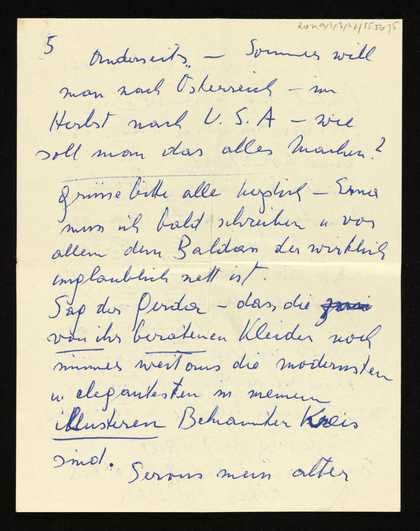 5
Anderseits, – Sommer will
man nach Österreich – im
Herbst nach U.S.A – wie
soll man das alles machen?
grüsse bitte alle herzlich – Erna
muss ich bald schreiben u vor
allem dem Baldan der wirklich
unglaublich nett ist.
Sag der Gerda – dass die
von ihr beratenen Kleider noch
immer weitaus die modernsten
u elegantesten in meinem
illusteren Bekannten Kreis
sind.
Servus mein alter